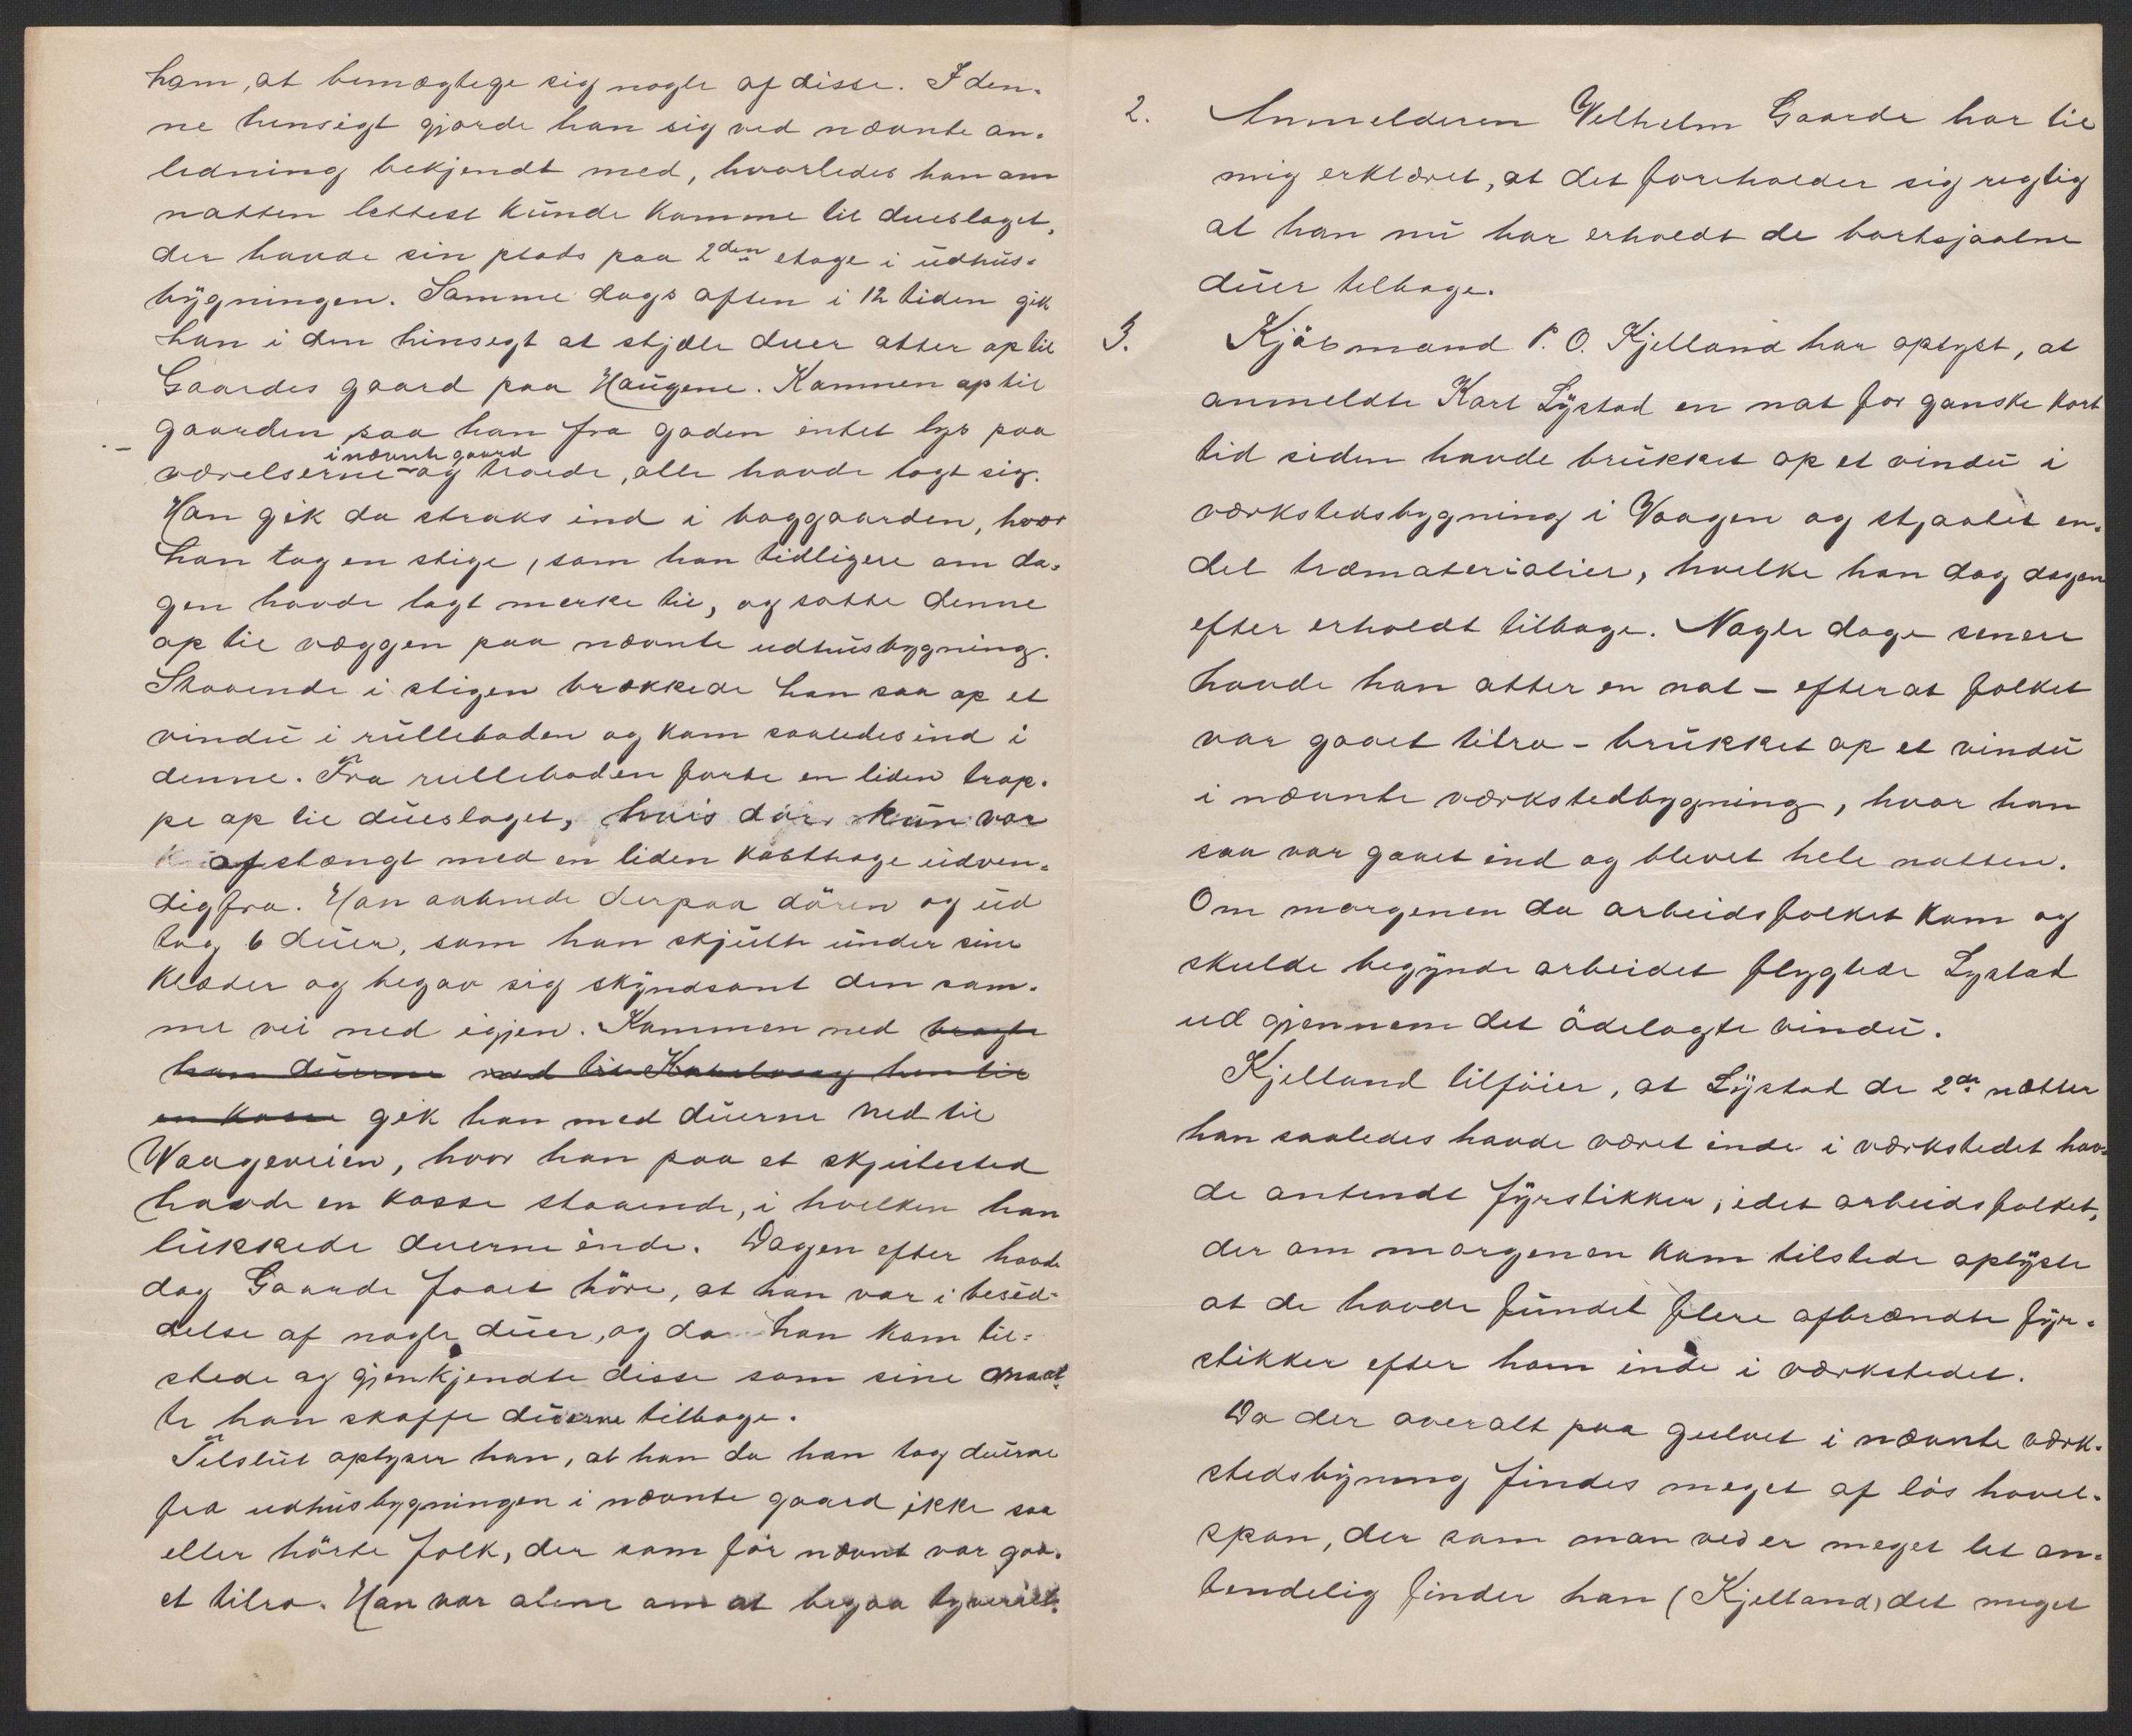 ham, at bemægtege sig nogle af disse. I den-
ne hensigt gjorde han sig ved nævnte an-
ledning bekjendt med, hvorledes han om
natten lettest kunde komme til dueslaget,
der havde sin plads paa 2den etage i udhus-
bygningen. Samme dags aften i 12 tiden gik
han i den hinsegt at stjæle duer atter op til
Gaardes gaard paa Haugene. Kommen op til
gaarden saa han fra gaden intet lys paa
i nævnte gaard
værelserne og troede, alle havde lagt sig.
Han gik da straks ind i baggaarden, hvor
han tog en stige, som han tidligere om da-
gen havde lagt merke til, og satte denne
op til væggen paa nævnte udhusbygning.
Staaende i stigen brækkede han saa op et
vindu i rulleboden og kom saaledes ind i
denne. Fra rulleboden førte en liden trap-
pe op til dueslaget, hvis dør kun var
afstængt med en liden kasthage udven-
digfra. Han aabnede derpaa døren og ud
tog 6 duer, som han skjulte under sine
klæder og begav sig skyndsomt den sam-
me vei ned igjen. Kommen ned bragte
han duerne ned til hen til
en kasse gik han med duerne ned til
Vaageveien, hvor han paa et skjulested
havde en kasse staaende, i hvelken han
lukkede duerne inde. Dagen efter havde
dog Gaarde faaet høre, at han var i besid-
delse af nogle duer, og da han kom til-
stede og gjenkjendte disse som sine maat-
te han skaffe duerne tilbage.
Tilslut oplyser han, at han da han tog duerne
fra udhusbygningen i nævnte gaard ikke saa
eller hørte folk, der som før nævnt var gaa-
et tilro. Han var alene om at begaa tyveriet.
2. Anmelderen Velhelm Gaarde har til
mig erklæret, at det foreholder sig regtig
at han nu har erholdt de bortsjaalne
duer telbage.
3. Kjøbmand P. O. Kjelland har oplyst, at
anmeldte Karl Lystad en nat for ganske kort
tid siden havde brukket op et vindu i
værkstedsbygning i Vaagen og stjaalet en-
del træmaterialier, hvelke han dog dagen
efter erholdt tilbage. Nogle dage senere
havde han atter en nat – efter at folket
var gaaet tilro – brukket op et vindu
i nævnte værkstedbygning, hvor han
saa var gaaet ind og blevet hele natten.
Om morgenen da arbeidsfolket kom og
skulde begynde arbeidet flygtede Lystad
ud gjennem det ødelagte vindu.
Kjelland tilføier, at Lystad de 2de nætter
han saaledes havde været inde i værkstedet hav-
de antendt fyrstikker, idet arbeidsfolket,
der om morgenen kom tilstede oplyste
at de havde fundet flere afbrændte fyr-
stikker efter ham inde i værkstedet.
Da der overalt paa gulvet i nævnte værk-
stedsbyning findes meget af løs hovel-
spon, der som man ved er meget let an-
tendelig finder han (Kjelland) det meget